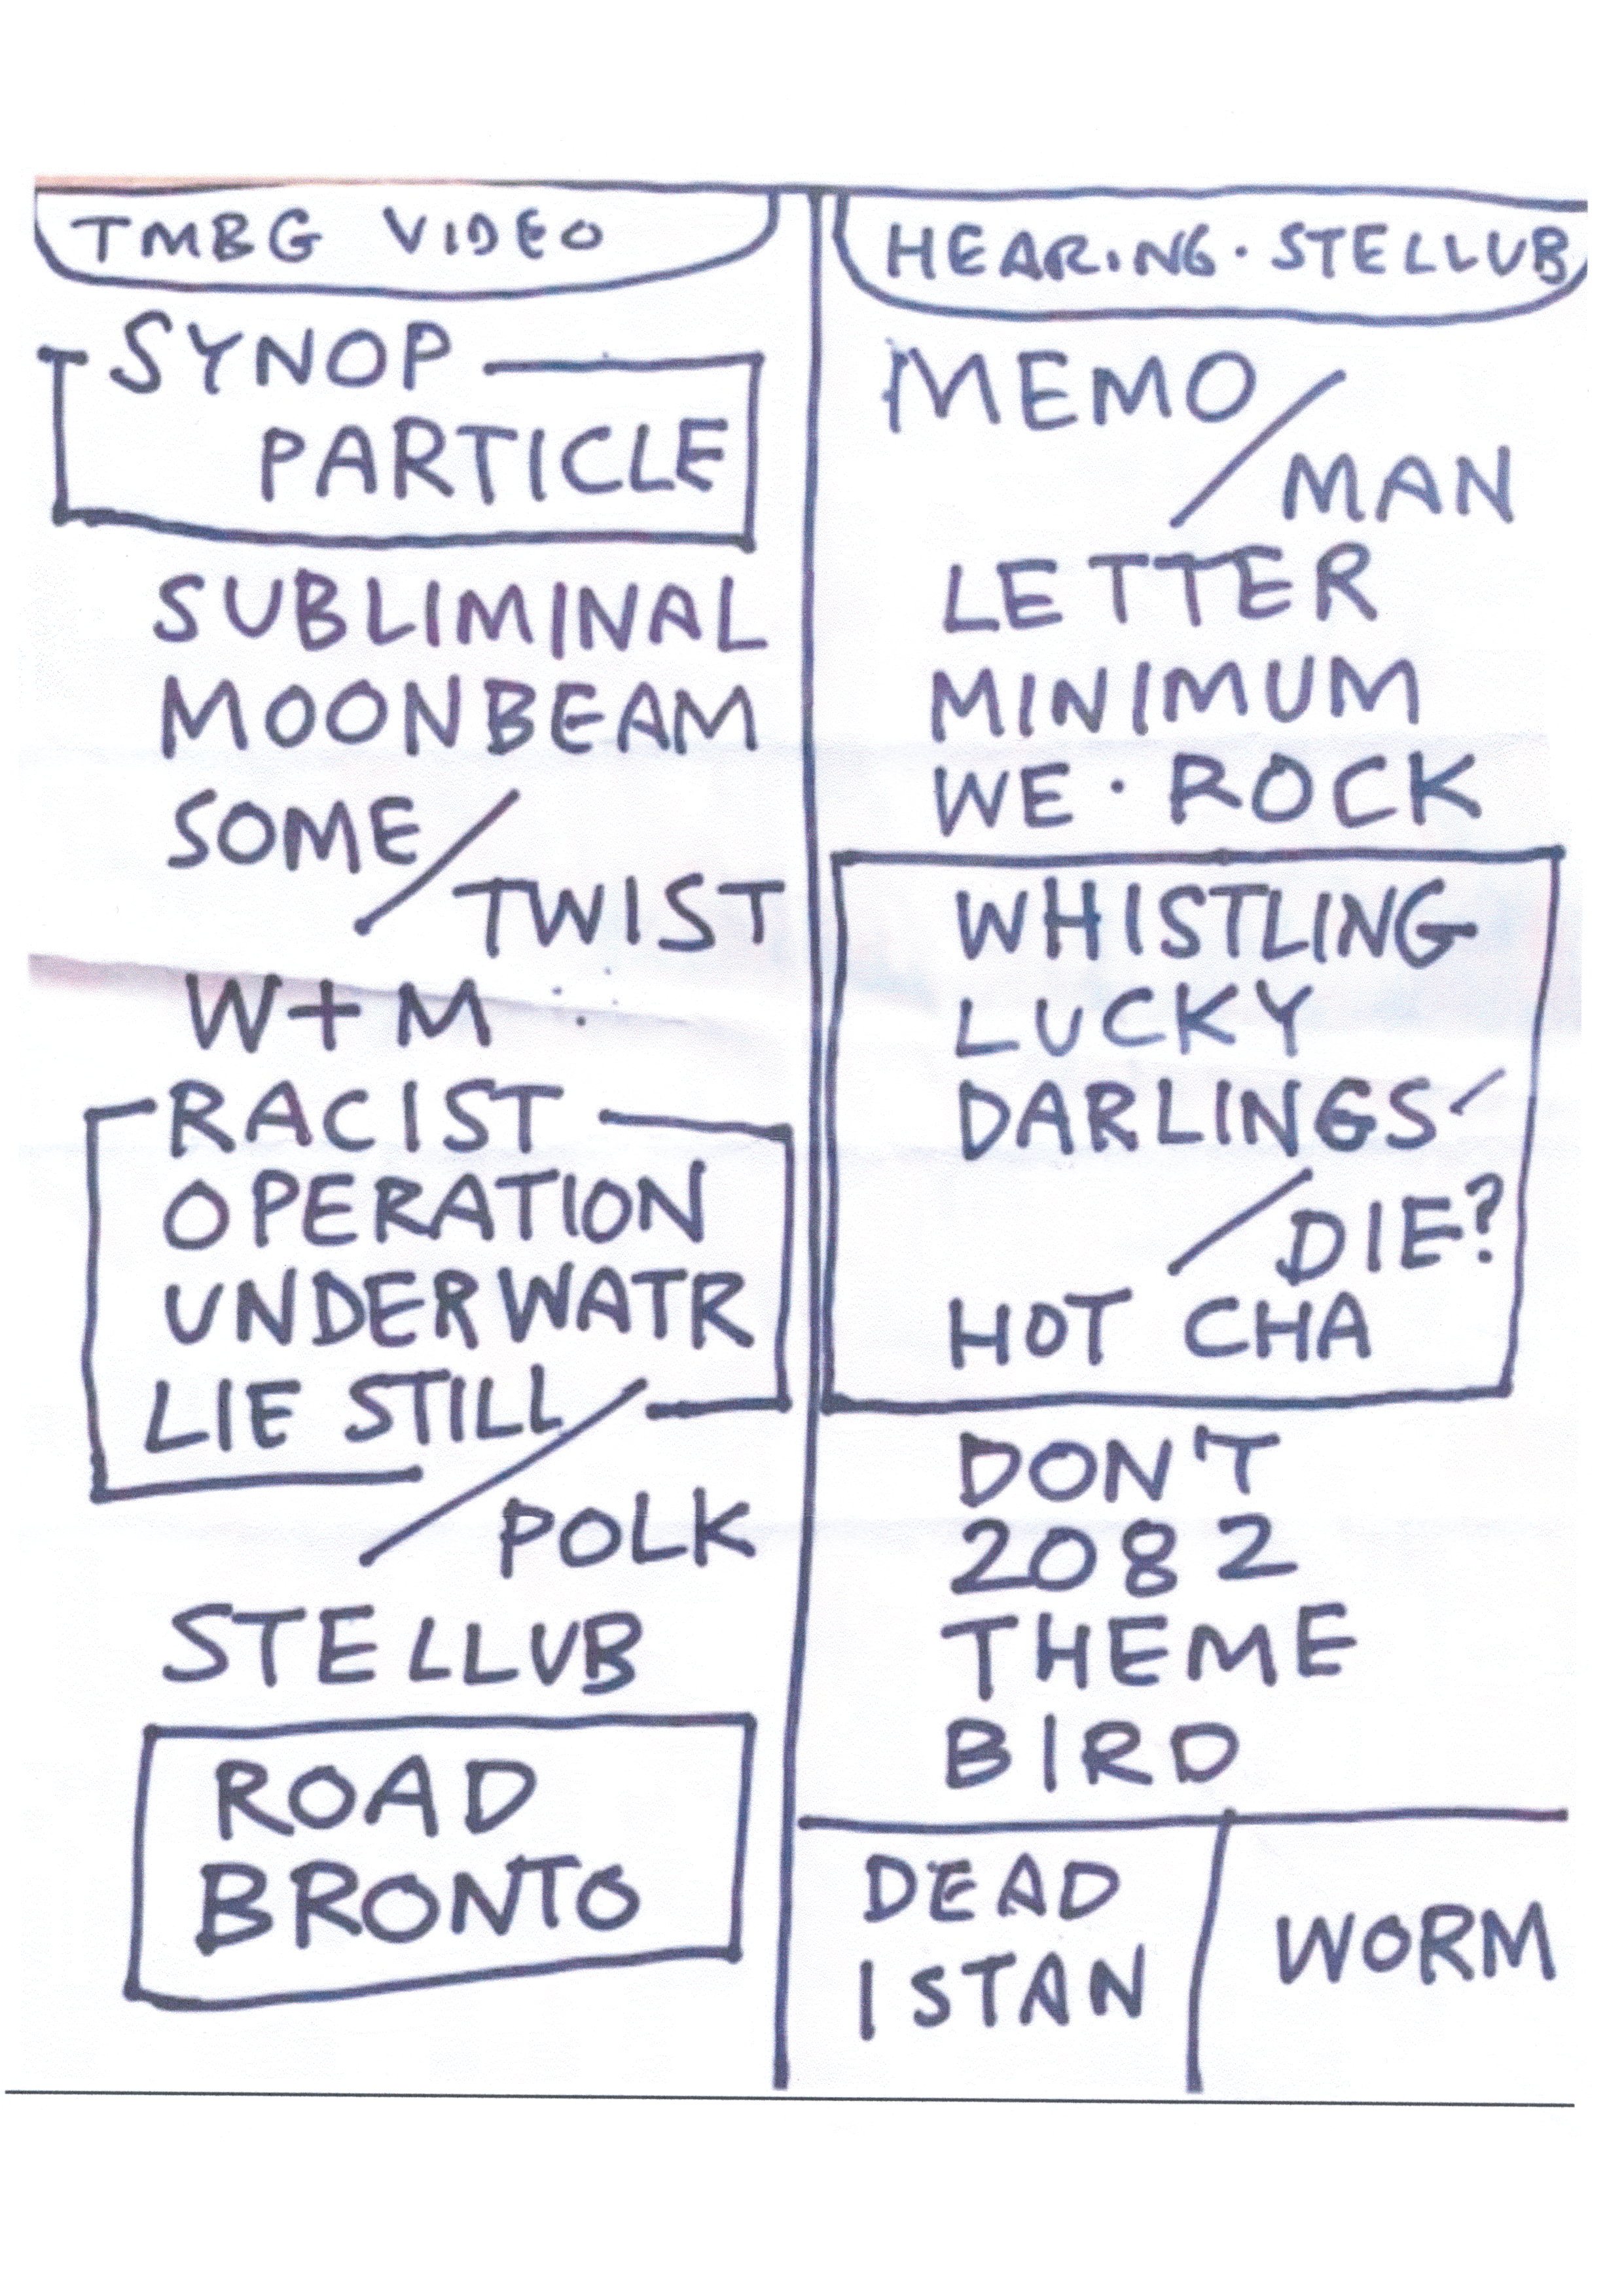 TMBG VIDEO
SYNOP
PARTICLE
SUBLIMINAL
MOONBEAM
SOME /
TWIST
W+M
RACIST
OPERATION
UNDERWATR
LIE STILL /
POLK
STELLUB
ROAD
BRONTO
HEARING · STELLUB
MEMO /
MAN
LETTER
MINIMUM
WE · ROCK
WHISTLING
LUCKY
DARLINGS /
/ DIE?
HOT CHA
DON'T
2082
THEME
BIRD
DEAD
ISTAN
WORM